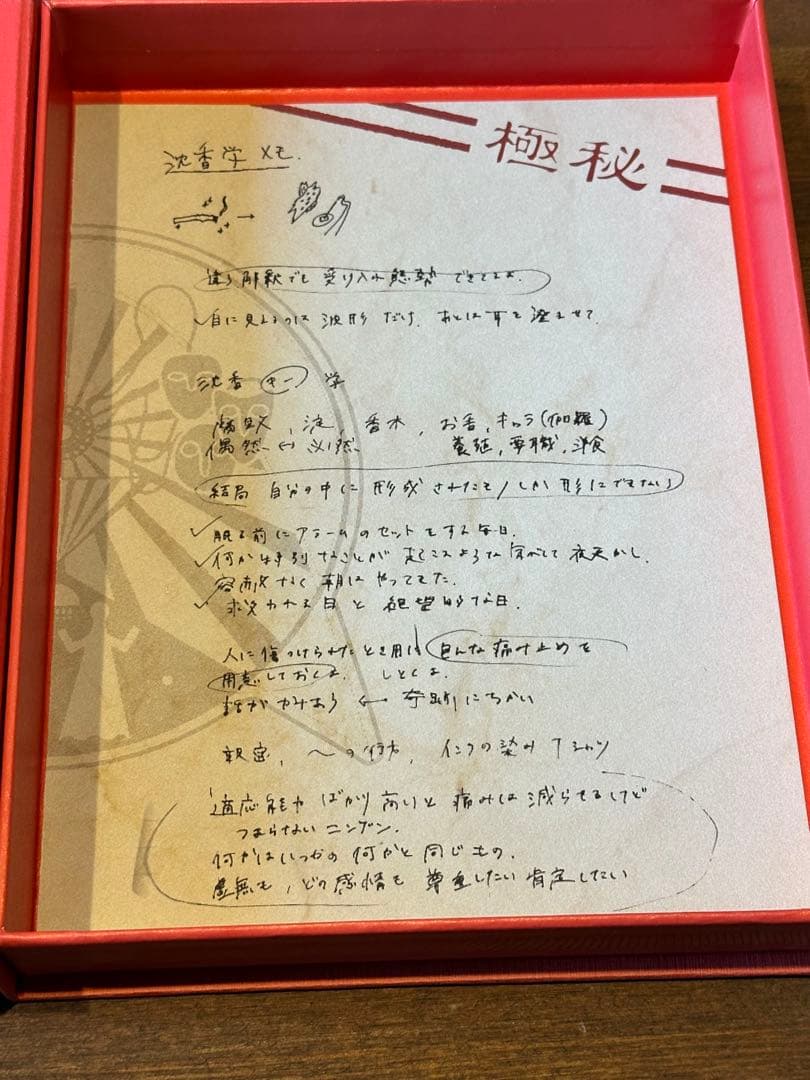 極秘
沈香学 メモ.
違う解釈でも 受け入れ態勢 できてるよ.
目に見えるのは 波形 だけ. あとは 耳を 澄ませて.
沈香 学
腐敗, 淀, 香木, お香, キャラ(伽羅)
偶然 ↔ 必然
養殖, 要職, 洋食
結局 自分の中に 形成されたモノしか 形にできない
眠る前にアラームのセットをする毎日.
何か特別なことが 起こるような 気がして 夜更かし.
容赦なく 朝は やってきた.
救われる日と 絶望的な日.
人に傷つけられたとき用に 色んな 痛み止めを
用意しておくよ. しとくよ.
噛みあう ← 奇跡にちかい
親密, 〜の行方, インクの染み Tシャツ
適応能力 ばかり 高いと 痛みは 減らせるけど
つまらない ニンゲン.
何かはいつかの 何かと 同じもの.
虚無も, どの感情も 尊重したい 肯定したい